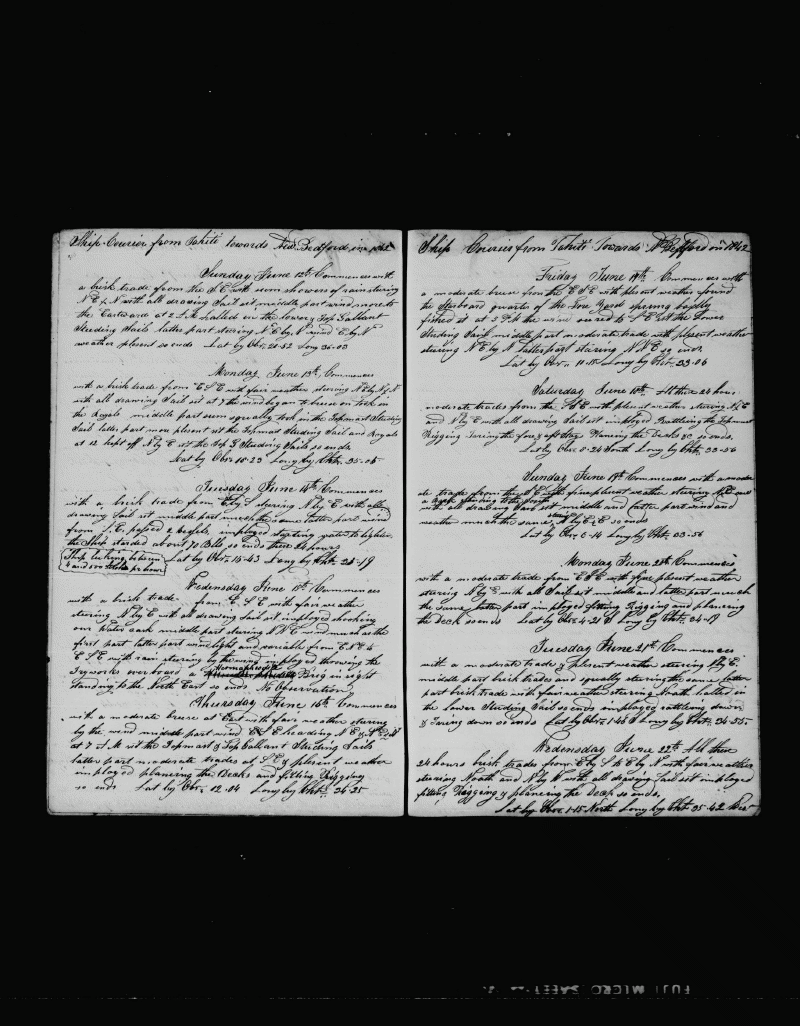 Ship Courier from Tahiti towards New Bedford in 1842
Sunday June 12th Commences with
a brisk trade from the S E with seem showers of rain stering
N E & N with all drawing Sail set middle part wind more to
the Eastward at 2 A M halled in the lower & Top Gallant
Studding Sails latter part stering N E by N wind E by N
weather plesent so ends Lat by Obr. 21-52 Long 36-03
Monday June 13th Commences
with a brisk trade from E S E with fair weather stering N E by N & N
with all drawing Sail set at 7 the wind began to breese on took in
the Royals middle part seem squally took in the Topmast Studding
Sail latter part more plesent set the Topmast Studing Sail and Royals
at 12 kept off N by E set the Top G Studing Sails so ends
Lat by Obr 18-23 Long by Cht. 35-05
Tuesday June 14th Commences
with a brisk trade from E by S stering N by E with all
drawing Sail set middle part much the same latter part wind
from S. E. passed 2 keghls, imployed starting water to lighten
the Ship started about 70 Blls so ends these 24 hours
Ship leaking between
4 and 500 Strokes per hour
Lat by Obr. 15-43 Long by Cht. 35-19
Wedensday June 15th Commences
with a brisk trade from E. S E with fair weather
stering N by E with all drawing Sail set imployed shooking
our Water cask middle part stering N N E wind much as the
first part latter part wind light and variable from E N E &
E S E with rain stering by the wind imployed throwing the
Tryworks overboard a Hermaphrodite Brig in sight
standing to the North East so ends No Observation
Thursday June 16th Commences
with a moderate breese at East with fair weather stering
by the wind middle part wind E S E heading N E & N E by N
at 7 A M set the Topmast & Top Gallant Studing Sails
latter part moderate trades at S E & plesent weather
imployed planeing the Decks and fitting Rigging
so ends Lat by Obr. 12-04 Long by Cht. 34-25
Ship Courier from Tahiti Towards N Bedford in 1842
Friday June 17th Commences with
a moderate breese from the E S E with plesent weather found
the Starboard quarter of the Fore Yard sprung badly
fished it at 5 P M the wind veered to S E set the Lower
Studing Sail middle part moderate trade with plesent weather
stering N E by N latter part stering N N E so ends
Lat by Obr. 11-15 Long by Cht. 33-06
Saturday June 18th All these 24 hours
moderate trades from the S E with plesent weather stering N N E
and N by E with all drawing Sail set imployed Rattling the Topmast
Rigging Taring the fore & aft Stay Planeing the Decks &c so ends.
Lat by Obr 8-24 South Long by Cht. 33-56
Sunday June 19th Commences with a moder
ate trade from the S E with fine plesent weather stering N E saw
a Bark standing to the South
with all drawing Sail set middle and latter part wind and
weather much the same, stering N by E & E so ends
Lat by Obr. 6-14 Long by Cht. 33-56
Monday June 20th Commences
with a moderate trade from E S E with fine plesent weather
stering N by E with all Sail set middle and latter part much
the same latter part imployed fitting Rigging and planeing
the Deck so ends Lat by Obr 4-21 S Long by Cht. 34-19
Tuesday June 21st Commences
with a moderate trade & plesent weather stering N by E
middle part brisk trades and squally stering the same latter
part brisk trade with fair weather stering North halled in
the lower Studding Sail so ends imployed rattleing down
& Taring down so ends Lat by Obr. 1-48 S Long by Cht. 34-55
Wedensday June 22nd All these
24 hours brisk trades from E by S & E by N with fair weather
stering North and N by W with all drawing Sail set imployed
fitting Rigging & planeing the Deck so ends.
Lat by Obr. 1-15 North Long by Cht. 35-42 West
FUJI MICRO SAFETY